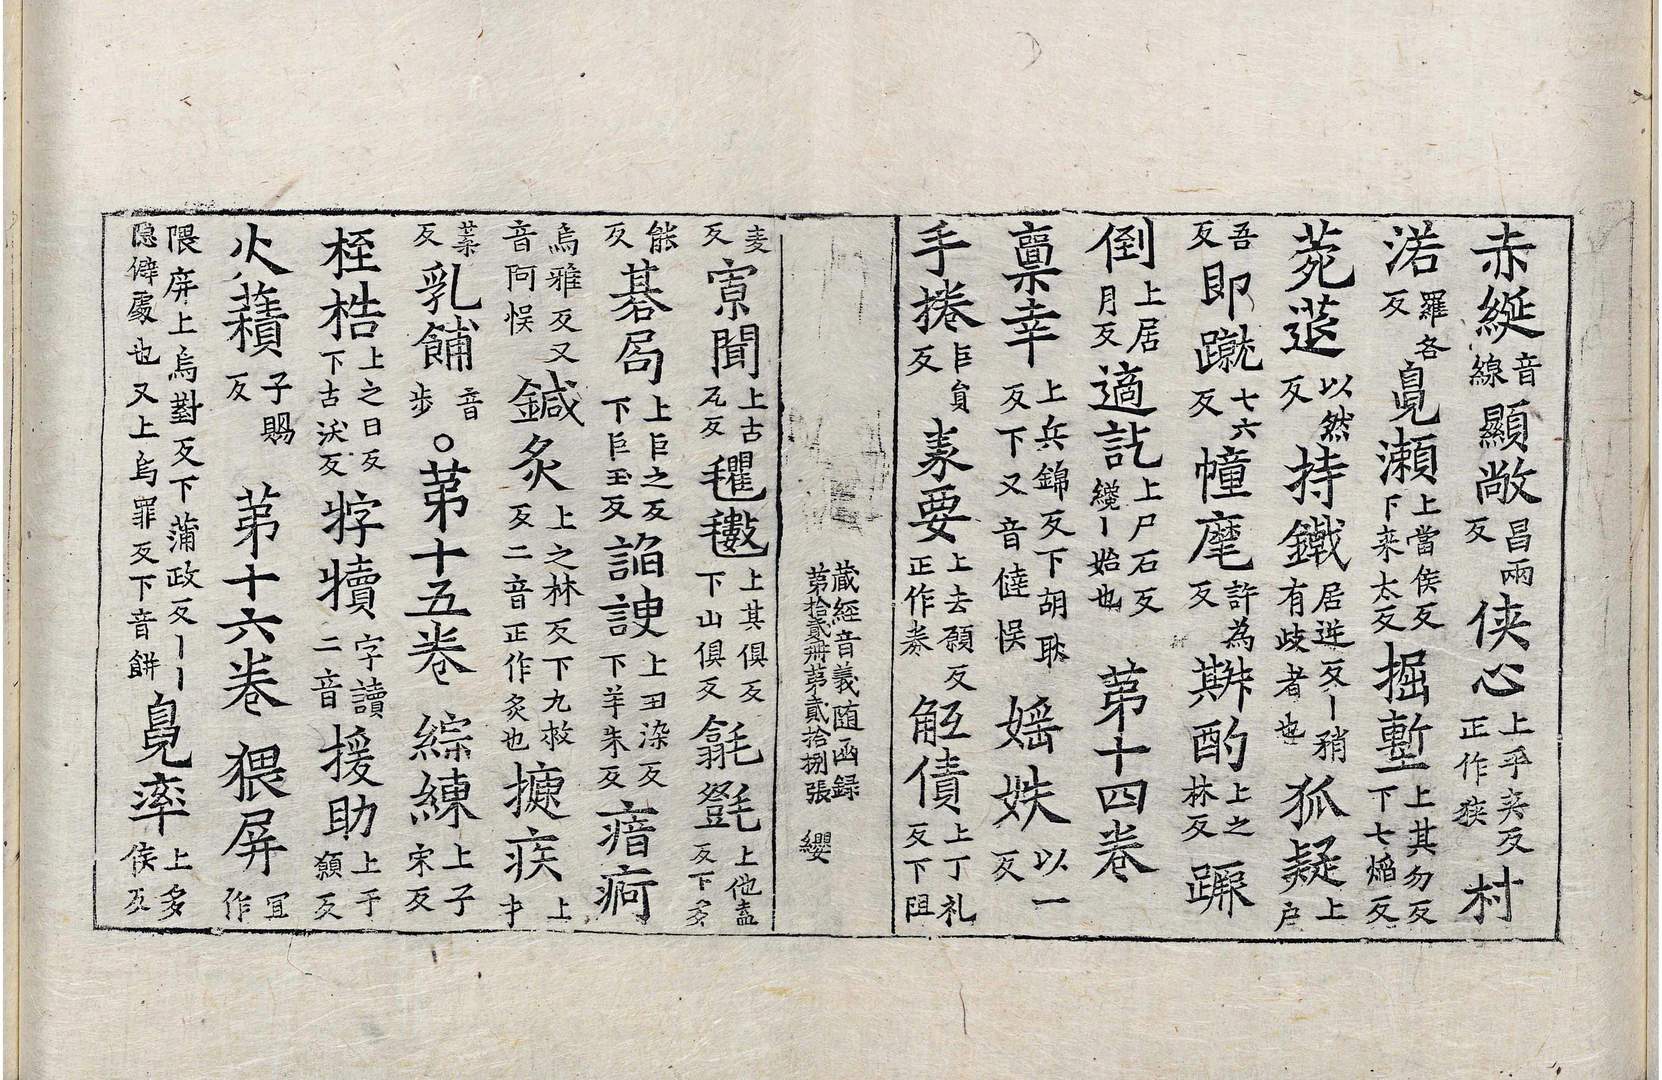 赤綖音線顯敞昌兩反俠心上乎夾反正作狹村
渃羅各反㲋瀨上當侯反下来太反掘塹上其勿反下七焰反
菀莚以然反持鐵居迸反丨稍有歧者也狐疑上户
吾反即蹴七六反幢麾許為反斟酌上之林反蹍
倒上居月反適訖上尸石反纔丨始也第十四卷
禀幸上兵錦反下胡耿反下又音倖悮婬妷以一反
手捲巨負反素要上去願反正作券解債上丁礼反下阻
藏經音義随函録第拾貳冊第貳拾捌張纓
麦反寡聞上古瓦反氍毹上其俱反下山俱反㲪㲪上他盍反下多
能反碁局上巨之反下巨玉反諂諛上丑染反下羊朱反瘖痾
烏雅反又音阿悮鍼灸上之林反下九救反二音正作灸也摭疾上才
葉反乳餔音步。第十五卷綜練上子宋反
桎梏上之日反下古沃反牸犢字讀二音援助上于願反
火䆅子賜反第十六卷猥屏冝作
隈屏上烏對反下蒲政反丨丨隐僻處也又上烏罪反下音餅㲋率上多侯反